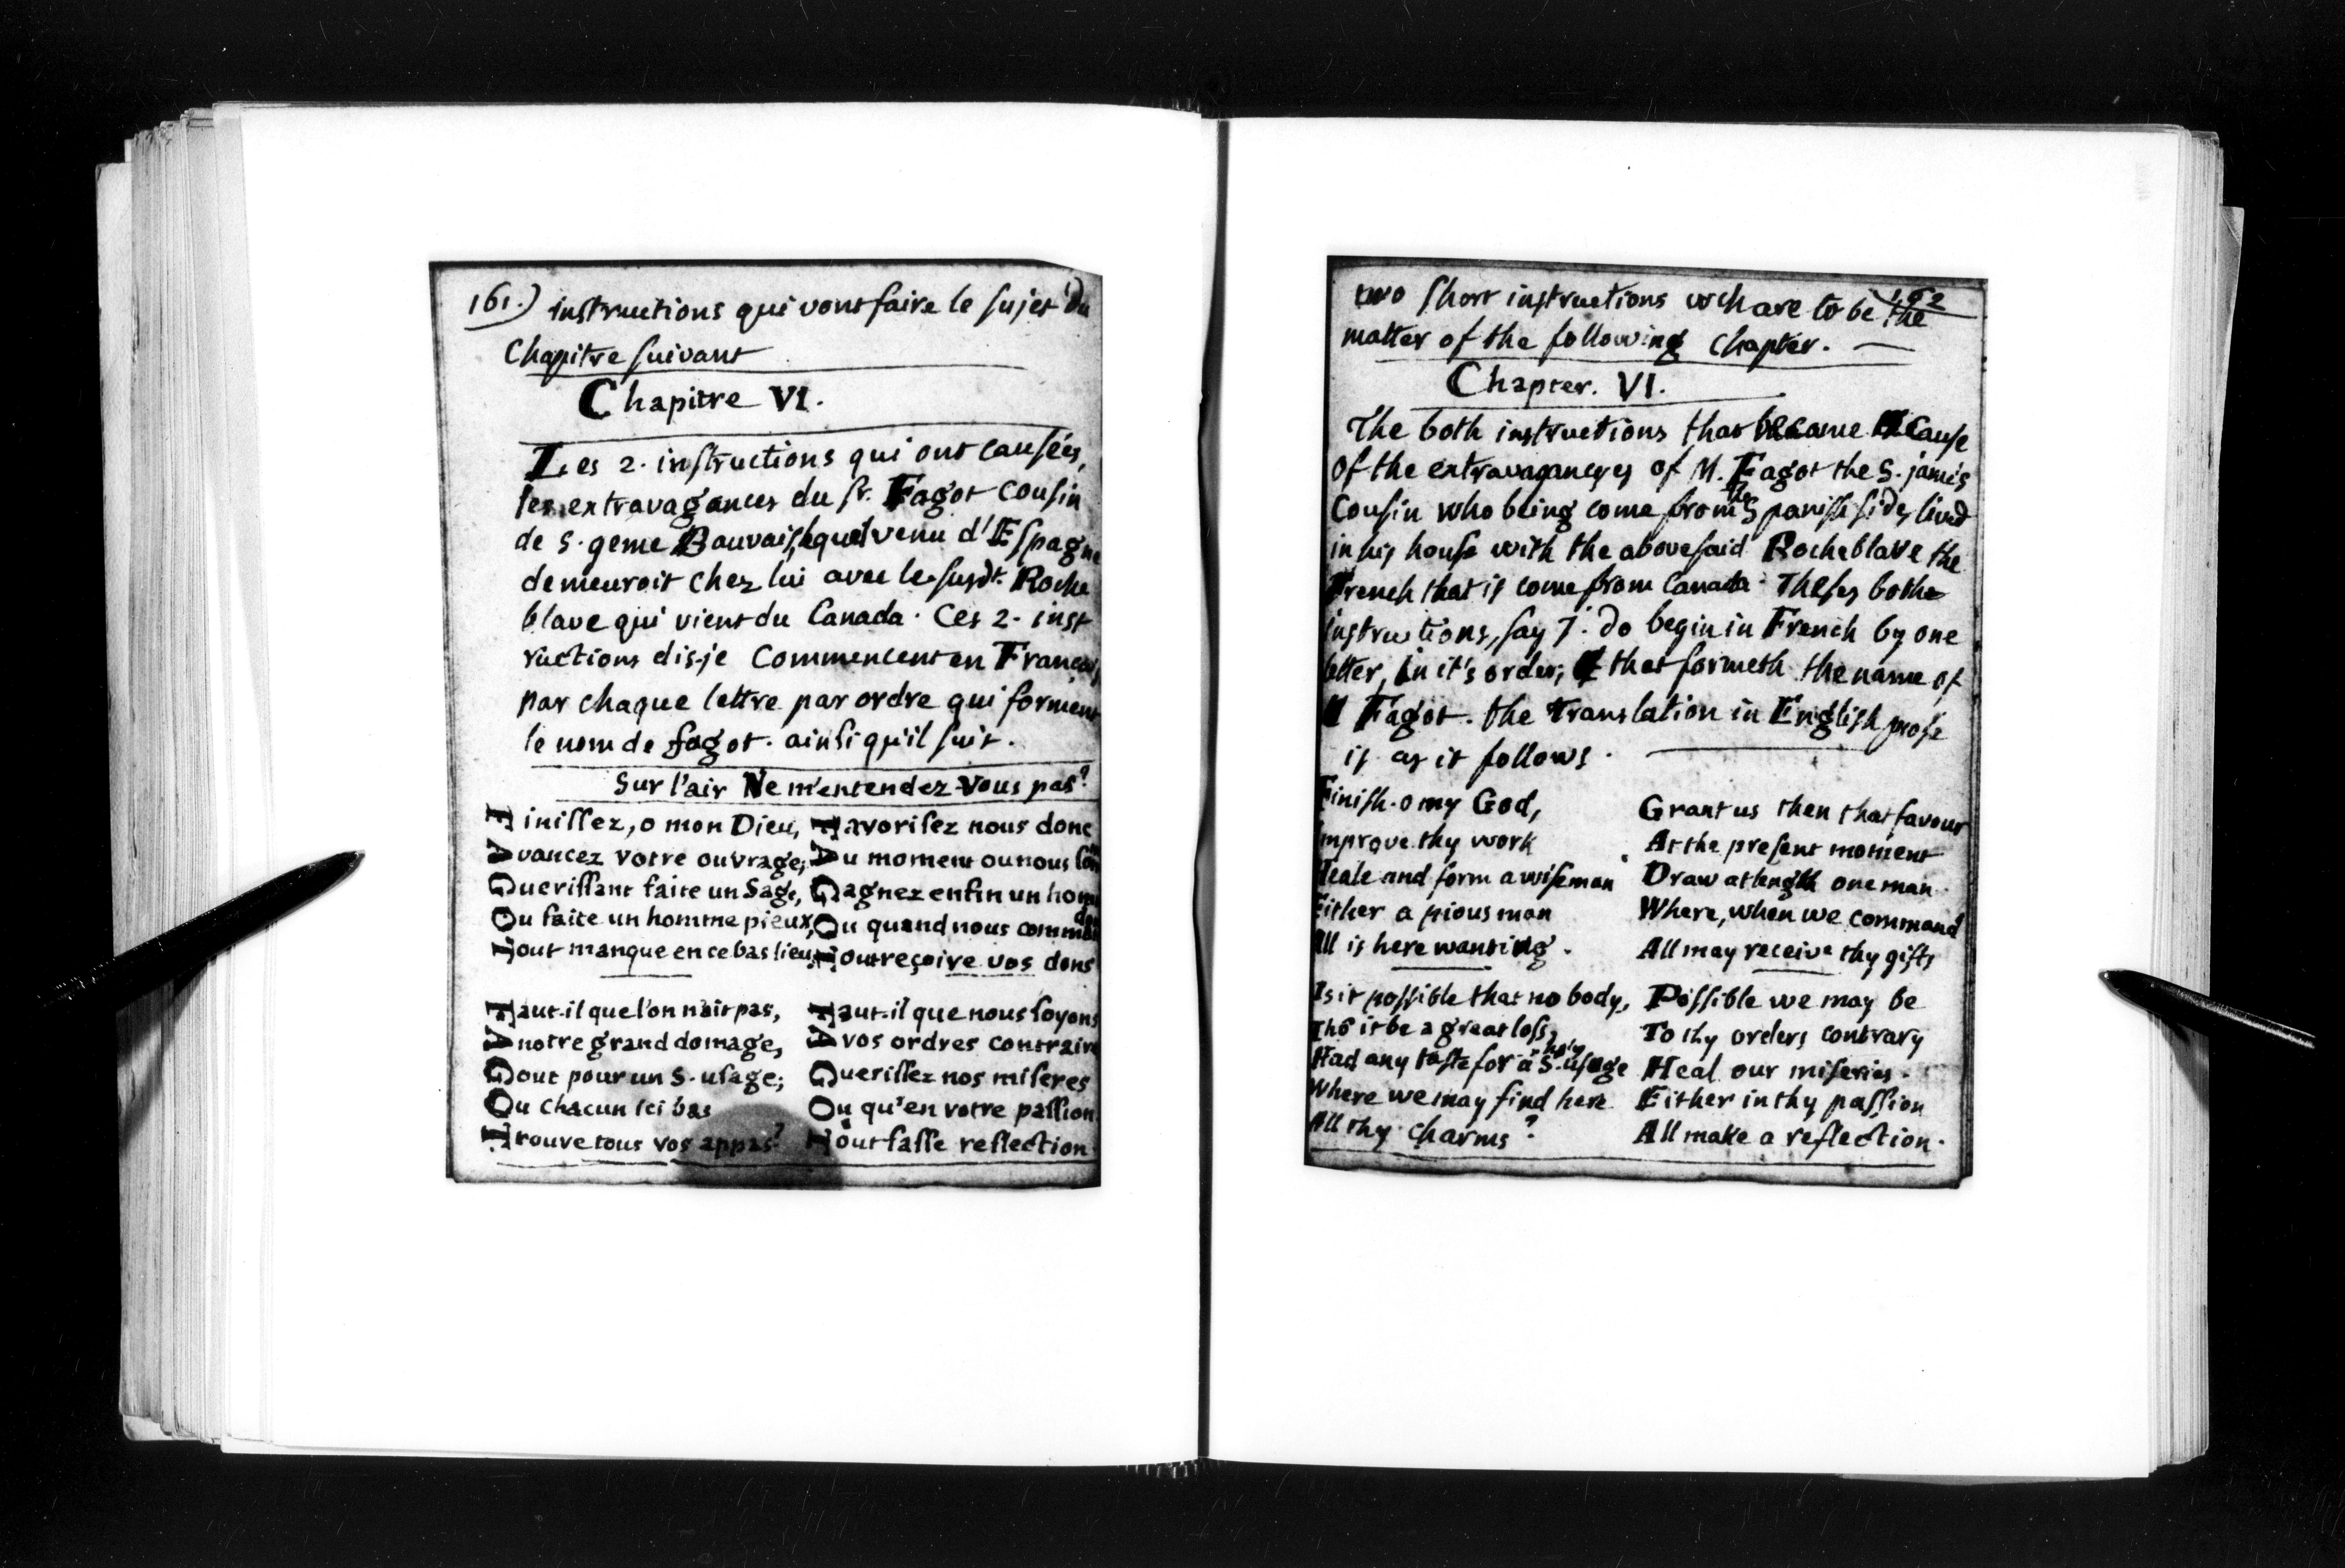 161.) instructions qui vont faire le sujet du
Chapitre suivant
Chapitre VI.
Les 2. instructions qui ont causées,
les extravagances du sr. Fagot Cousin
de S. geme Bauvais, lequel venu d'Espagne
demeuroit chez lui avec le susdt. Roche
blave qui vient du Canada. Ces 2. inst
ructions dis-je Commencent en Francais,
par chaque lettre par ordre qui forment
le nom de fagot. ainsi qu'il suit.
Sur l'air Ne m'entendez Vous pas?
Finissez, o mon Dieu,
Avancez votre ouvrage;
Guerissant faite un Sage,
Ou faite un homme pieux,
Tout manque en ce bas lieu,
Favorisez nous donc
Au moment ou nous
Gagnez enfin un
Ou quand nous
Tout reçoive vos dons
Faut-il que l'on n'ait pas,
A notre grand domage,
Gout pour un S. usage;
Ou chacun ici bas
Trouve tous vos appas?
Faut-il que nous soyons
A vos ordres contraire
Guerissez nos miseres
Ou qu'en votre passion
Tout fasse reflection.
162
two short instructions wch are to be the
matter of the following Chapter.
Chapter. VI.
The both instructions that became Cause
of the extravagancyes of M. Fagot the S. jame's
Cousin who being come from the Spanish side, lived
in his house with the abovesaid Rocheblave the
French that is come from Canada. Theses bothe
instructions, say j. do begin in French by one
letter, in it's order; that formeth the name of
Fagot. the Translation in English prose
is as it follows.
Finish. o my God,
Improve thy work
Heale and form a wiseman
Either a pious man
All is here wanting.
Grant us then that favour
At the present moment
Draw at length one man
Where, when we command
All may receive thy gifts
Is it possible that no body,
Tho it be a great loss,
Had any taste for a S. holy usage
Where we may find here
All thy charms?
Possible we may be
To thy orders contrary
Heal our miseries.
Either in thy passion
All make a reflection.